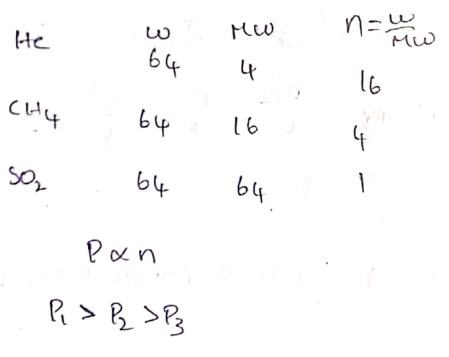 He W MW n = W/MW
64 4 16
CH4 64 16 4
SO2 64 64 1
P ∝ n
P1 > P2 > P3